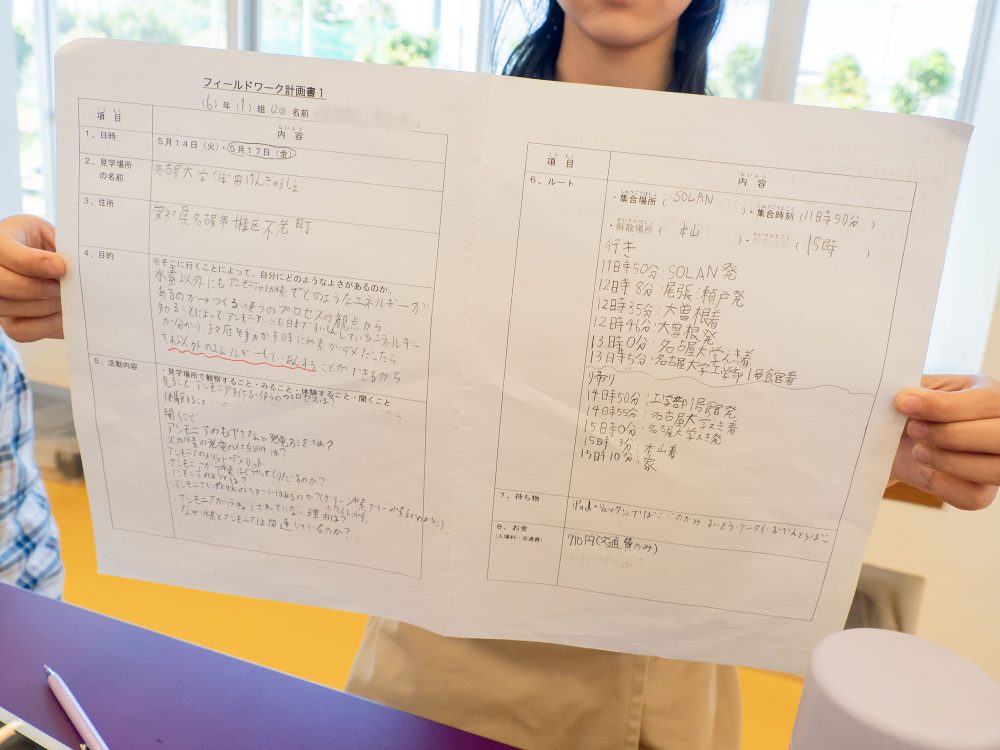 フィールドワーク計画書1
(6)年(1)組(20)名前
項目 内容
1、日時 5月14日(火)・5月17日(金)
2、見学場所の名前 名古屋大学くぼ田けんきゅうしょ
3、住所 愛知県名古屋市 区不老町
4、目的 ※そこに行くことによって、自分にどのようなよさがあるのか。
水素以外にもアンモニアや でどのようなエネルギーが
あるのか→つくる・使うのプロセスの観点から
知ることによってアンモニア にも日本で しているエネルギー
が分かり、政府を動かす時に水素がダメだったら
それ以外のエネルギーも ことができるから
5、活動内容 ・見学場所で観察すること・みること・体験すること・聞くこと
見ること:アンモニアを 使うのプロセスは?
体験すること:
聞くこと:
アンモニアのもやさない発電方法とは?
火力 の発電の仕組みは?
アンモニアのメリット・デメリット
アンモニアが のか?
アンモニア とは?
アンモニアに あるのか?(グリーン水素 のように)
・アンモニアが されていない理由は?
なぜ とアンモニアは関連しているのか?
項目 内容
6、ルート ・集合場所( SOLAN )・集合時刻(11時50分)
・解散場所( 本山 )・解散時刻( 15時 )
行き
11時50分:SOLAN発
12時8分:尾張瀬戸発
12時35分:大曽根着
12時46分:大曽根発
13時0分:名古屋大学えき着
13時5分:名古屋大学工学部1号館着
帰り
14時50分:工学部1号館発
14時55分:名古屋大学えき着
15時0分:名古屋大学えき発
15時3分:本山着
15時10分:家
7、持ち物 iPad・リュック・ふでばこ・ ・すいとう・ケータイ・おべんとうばこ
8、お金(入場料・交通費) 910円(交通費のみ)